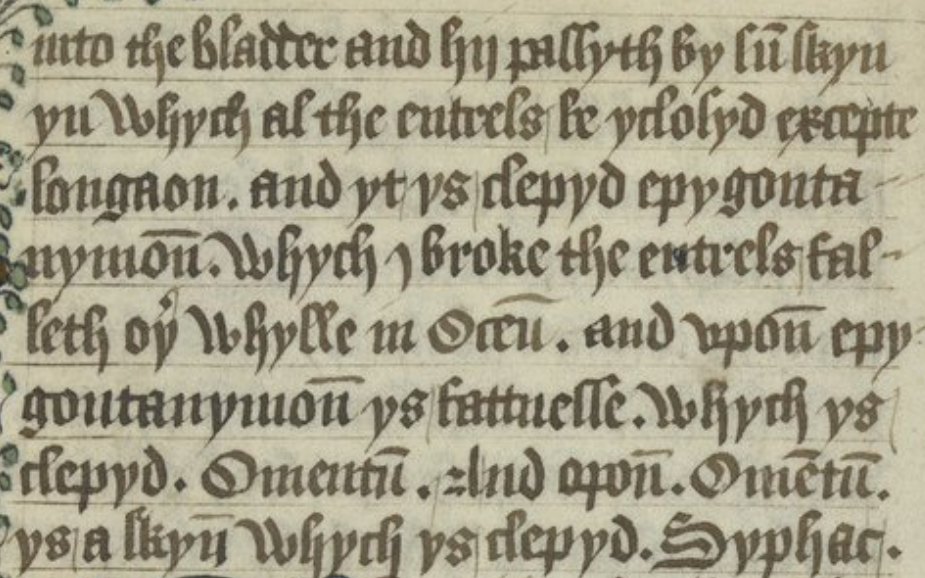 into the bladder and hij passyth by sū skyn
yn whych al the entrels be yclosyd excepte
longaon. and yt ys clepyd epygonta
nymon̄. Whych ȷ broke the entrels fal-
leth oþ whylle in Oceū. and vpon̄ epy
gontanymon̄ ys fattnesse. whych ys
clepyd. Omentū. And opon̄. Omētū.
ys a skyn̄ whych ys clepyd. Syphac.